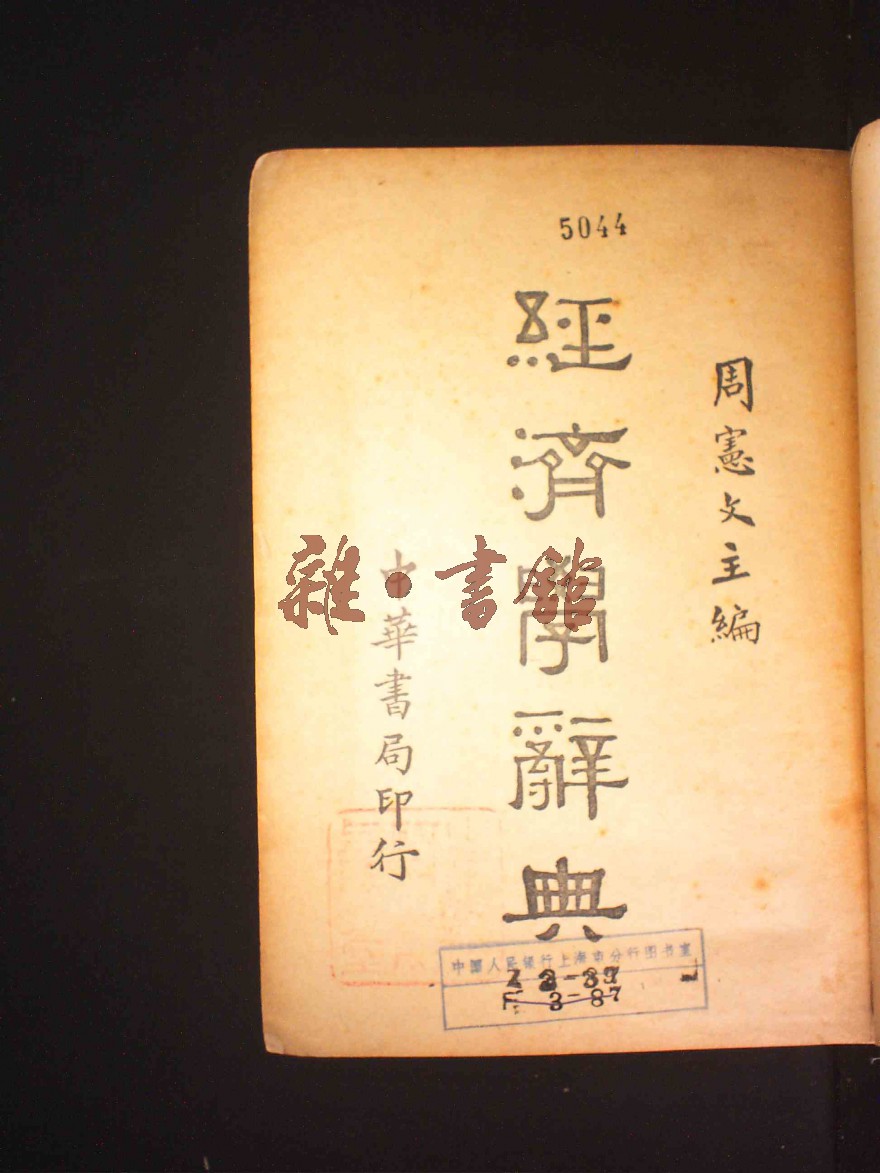 5044
周憲文主編
經濟學辭典
中華書局印行
雜·書館
中國人民銀行上海市分行图书室
Z 2-87
F 3-87